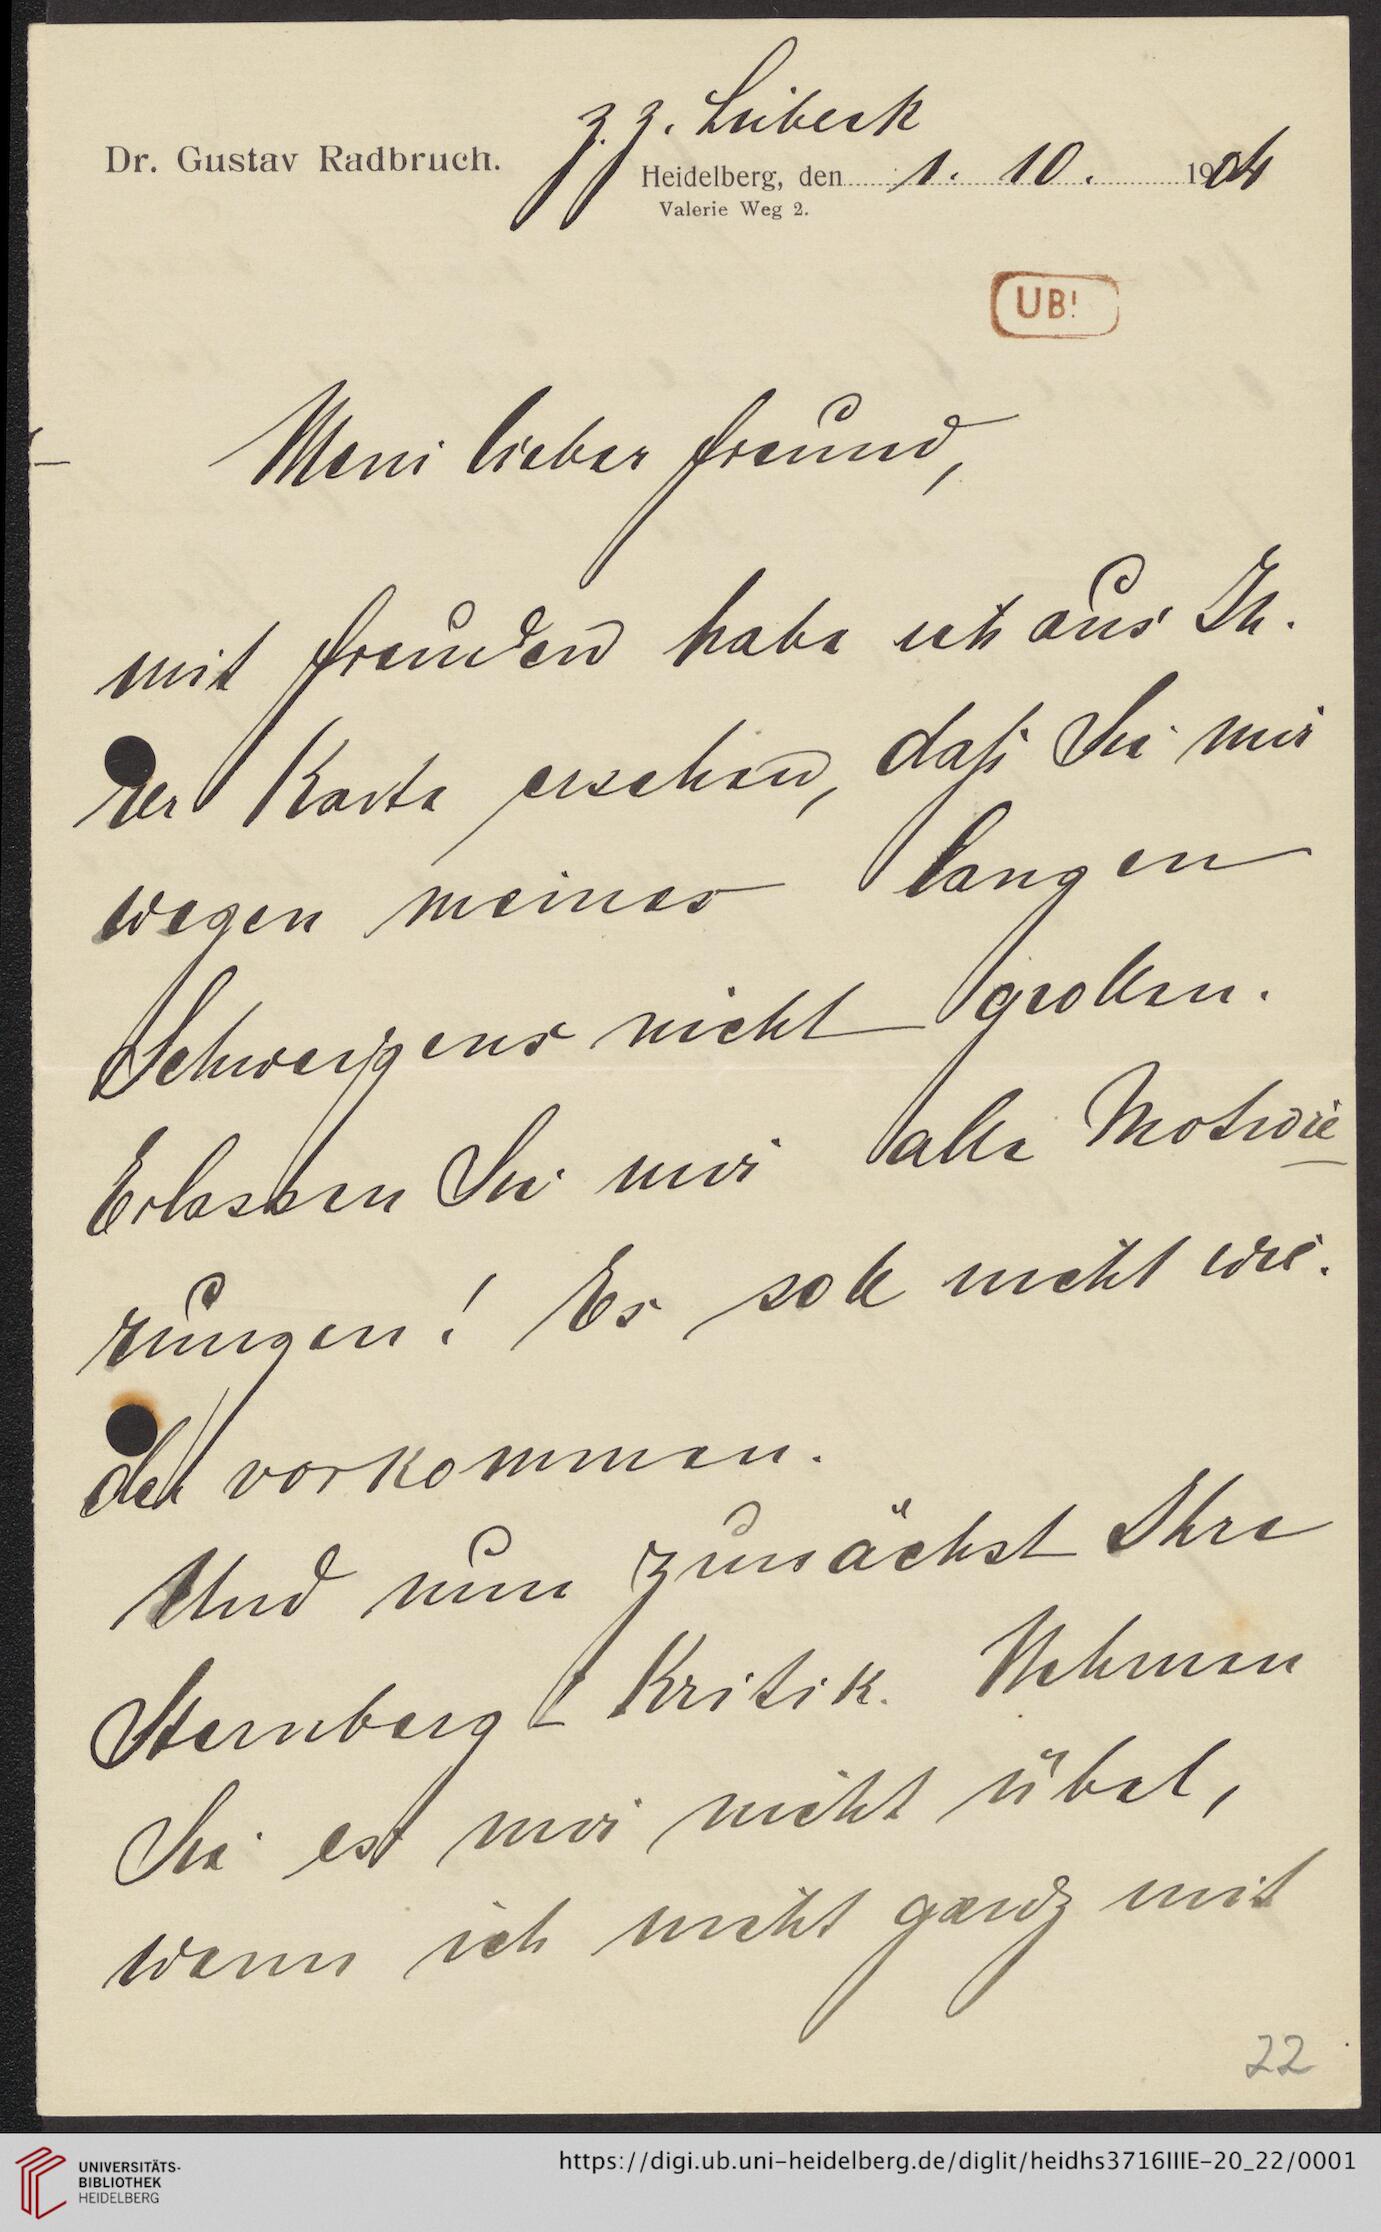 z. Z. Lübeck
Dr. Gustav Radbruch.
Heidelberg, den 1. 10. 1904
Valerie Weg 2.
UB!
Mein lieber Freund,
mit Freuden habe ich aus Ih-
rer Karte ersehen, daß Sie mir
wegen meines langen
Schweigens nicht grollen.
Erlassen Sie mir alle Motivie-
rungen! Es soll nicht wie-
der vorkommen.
Und nun zunächst Ihre
Sternberg-Kritik. Nehmen
Sie es mir nicht übel,
wenn ich nicht ganz mit
22
UNIVERSITÄTS-
BIBLIOTHEK
HEIDELBERG
https://digi.ub.uni-heidelberg.de/diglit/heidhs3716IIIE-20_22/0001